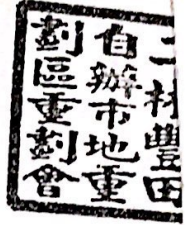 二村豐田
自辦市地重
劃區重劃會